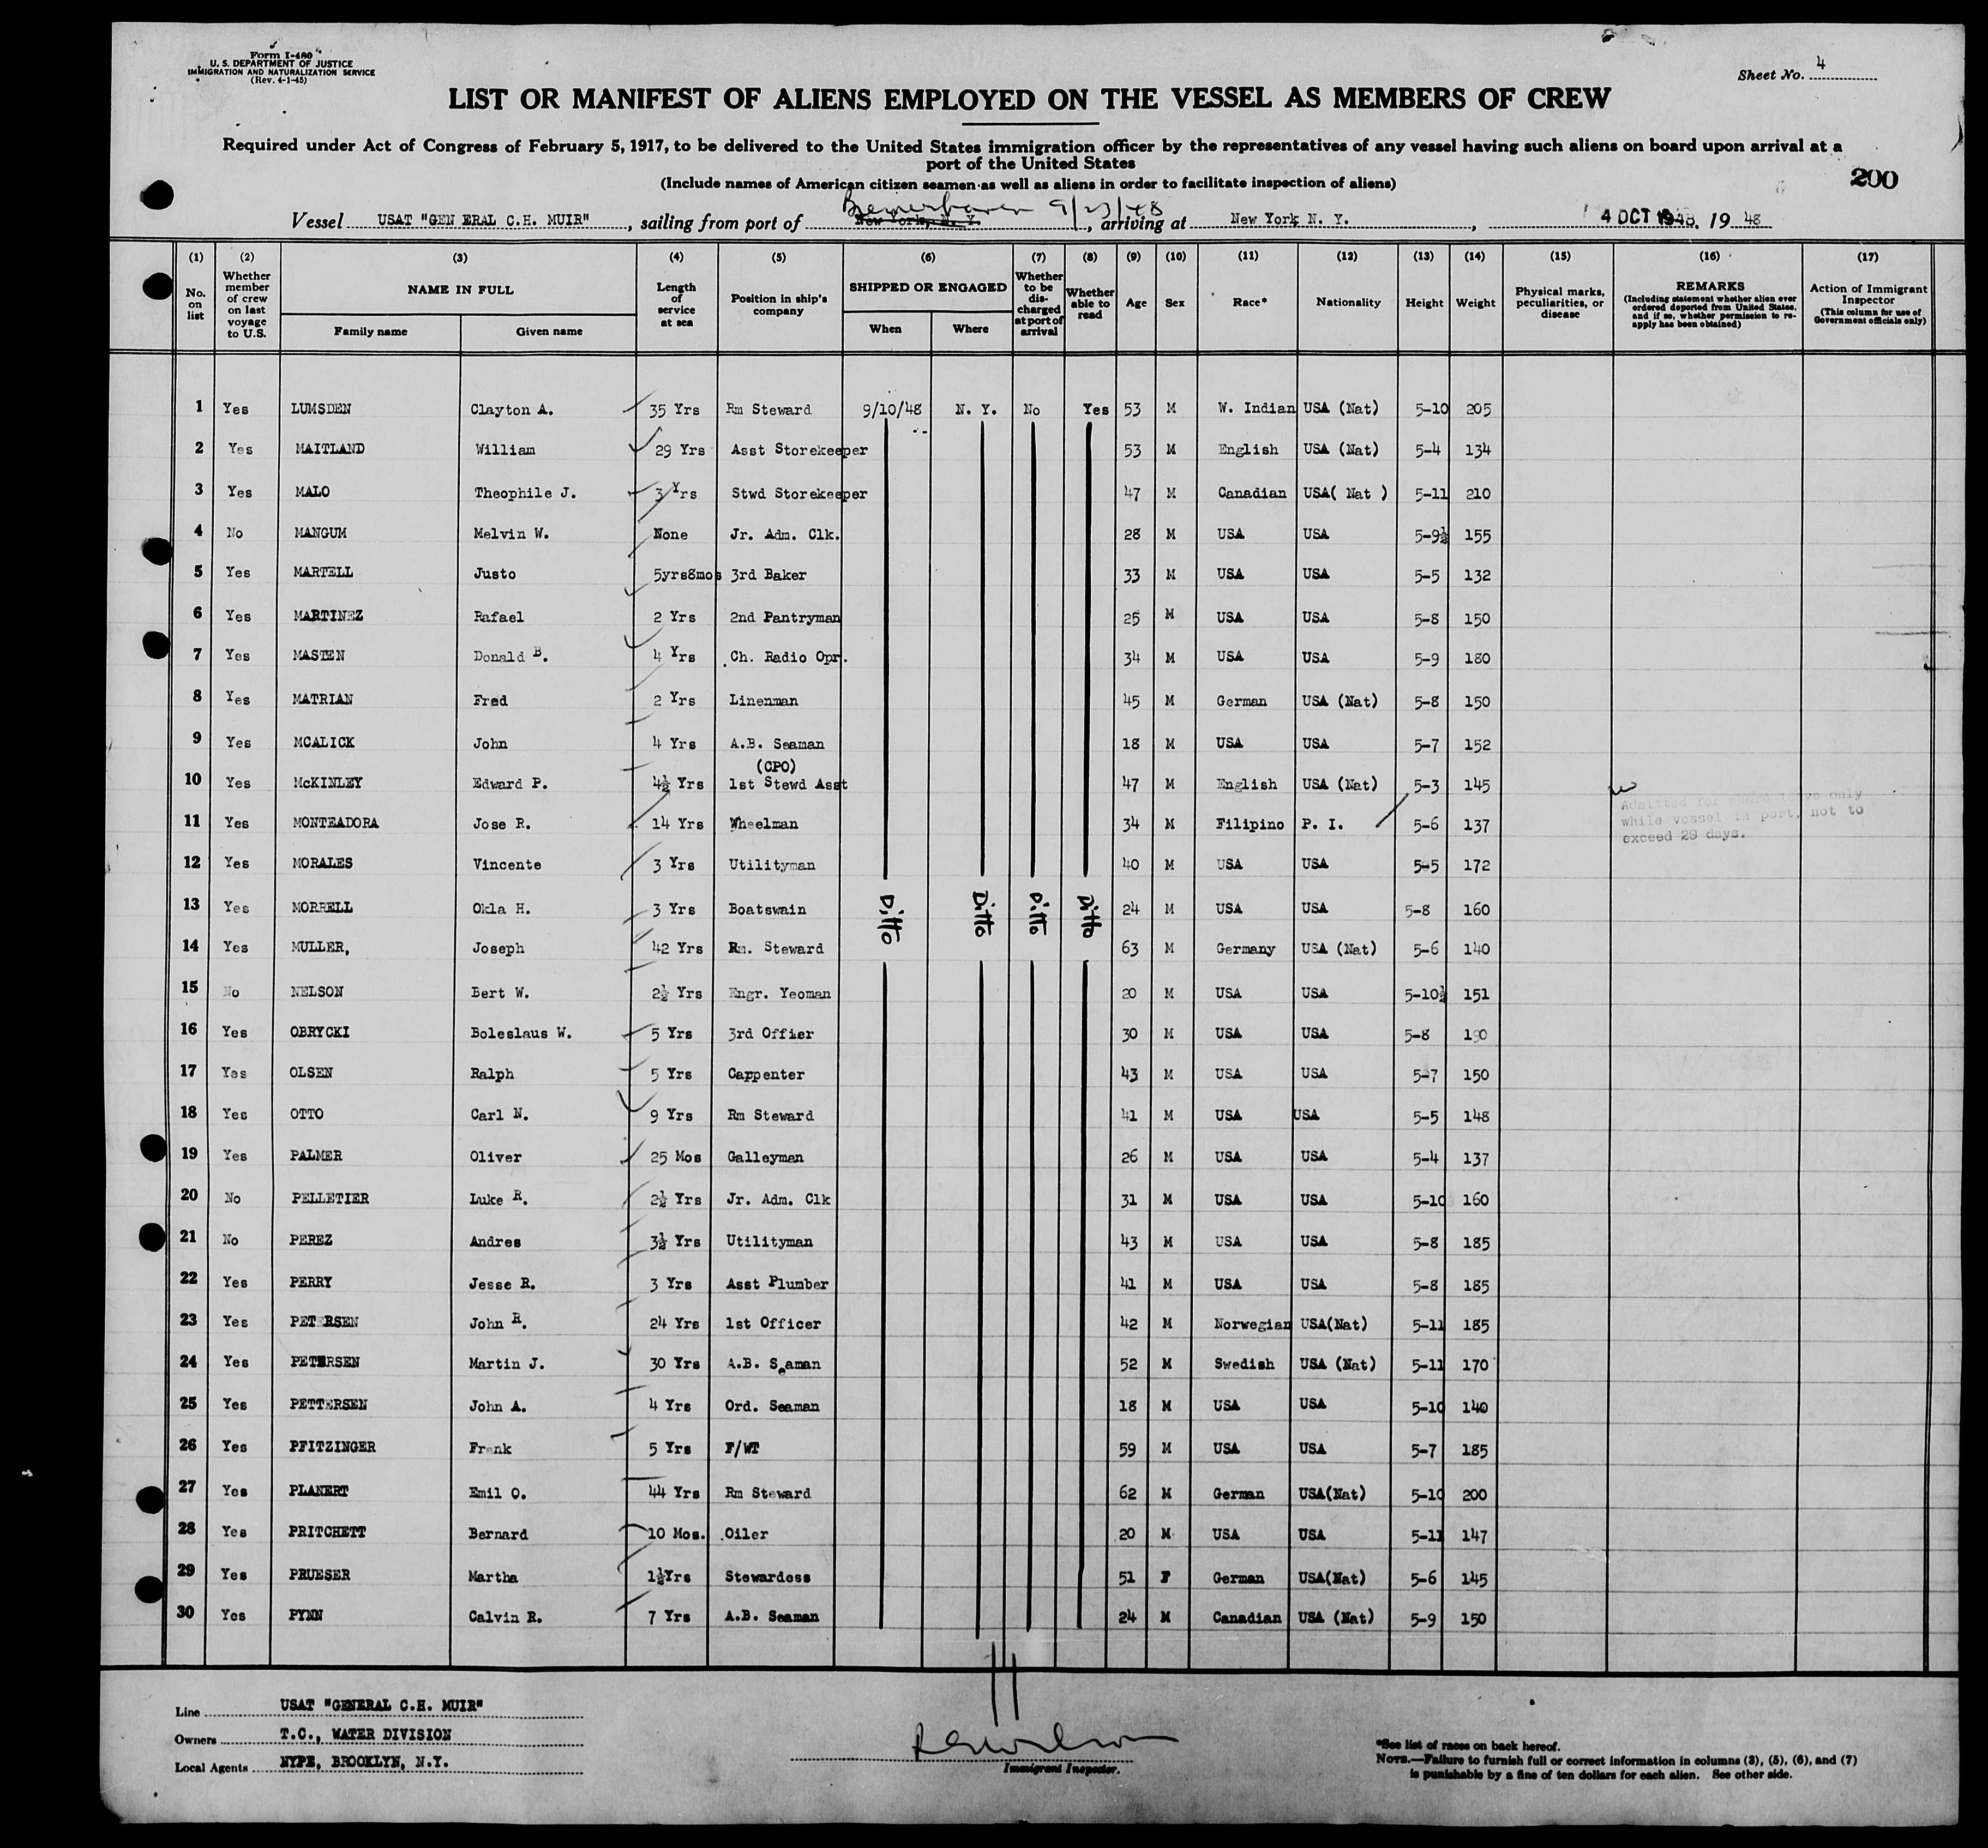 Form I-480
U. S. DEPARTMENT OF JUSTICE
IMMIGRATION AND NATURALIZATION SERVICE
(Rev. 4-1-45)
Sheet No. 4
LIST OR MANIFEST OF ALIENS EMPLOYED ON THE VESSEL AS MEMBERS OF CREW
Required under Act of Congress of February 5, 1917, to be delivered to the United States immigration officer by the representatives of any vessel having such aliens on board upon arrival at a
port of the United States
(Include names of American citizen seamen as well as aliens in order to facilitate inspection of aliens)
200
Bremerhaven 9/23/48
Vessel USAT "GEN ERAL C.H. MUIR", sailing from port of New York, N. Y., arriving at New York, N. Y., 4 OCT 1948, 19 48
(1) (2) (3) (4) (5) (6) (7) (8) (9) (10) (11) (12) (13) (14) (15) (16) (17)
No. on list
Whether member of crew on last voyage to U.S.
NAME IN FULL
Family name
Given name
Length of service at sea
Position in ship's company
SHIPPED OR ENGAGED
When
Where
Whether to be discharged at port of arrival
Whether able to read
Age
Sex
Race*
Nationality
Height
Weight
Physical marks, peculiarities, or disease
REMARKS
(Including statement whether alien ever ordered deported from United States, and if so, whether permission to reapply has been obtained)
Action of Immigrant Inspector
(This column for use of Government officials only)
1 Yes LUMSDEN Clayton A. 35 Yrs Rm Steward 9/10/48 N. Y. No Yes 53 M W. Indian USA (Nat) 5-10 205
2 Yes MAITLAND William 29 Yrs Asst Storekeeper 53 M English USA (Nat) 5-4 134
3 Yes MALO Theophile J. 3 Yrs Stwd Storekeeper 47 M Canadian USA( Nat ) 5-11 210
4 No MANGUM Melvin W. None Jr. Adm. Clk. 28 M USA USA 5-9½ 155
5 Yes MARTELL Justo 5yrs8mos 3rd Baker 33 M USA USA 5-5 132
6 Yes MARTINEZ Rafael 2 Yrs 2nd Pantryman 25 M USA USA 5-8 150
7 Yes MASTEN Donald B. 4 Yrs Ch. Radio Opr. 34 M USA USA 5-9 180
8 Yes MATRIAN Fred 2 Yrs Linenman 45 M German USA (Nat) 5-8 150
9 Yes MCALICK John 4 Yrs A.B. Seaman 18 M USA USA 5-7 152
(CPO)
10 Yes McKINLEY Edward P. 4½ Yrs 1st Stewd Asst 47 M English USA (Nat) 5-3 145
11 Yes MONTEADORA Jose R. 14 Yrs Wheelman 34 M Filipino P. I. 5-6 137
Admitted for shore leave only
while vessel in port, not to
exceed 29 days.
12 Yes MORALES Vincente 3 Yrs Utilityman 40 M USA USA 5-5 172
13 Yes MORRELL Okla H. 3 Yrs Boatswain Ditto Ditto Ditto Ditto 24 M USA USA 5-8 160
14 Yes MULLER, Joseph 42 Yrs Rm. Steward 63 M Germany USA (Nat) 5-6 140
15 No NELSON Bert W. 2½ Yrs Engr. Yeoman 20 M USA USA 5-10½ 151
16 Yes OBRYCKI Boleslaus W. 5 Yrs 3rd Offier 30 M USA USA 5-8 190
17 Yes OLSEN Ralph 5 Yrs Cappenter 43 M USA USA 5-7 150
18 Yes OTTO Carl N. 9 Yrs Rm Steward 41 M USA USA 5-5 148
19 Yes PALMER Oliver 25 Mos Galleyman 26 M USA USA 5-4 137
20 No PELLETIER Luke R. 2½ Yrs Jr. Adm. Clk 31 M USA USA 5-10 160
21 No PEREZ Andres 3½ Yrs Utilityman 43 M USA USA 5-8 185
22 Yes PERRY Jesse R. 3 Yrs Asst Plumber 41 M USA USA 5-8 185
23 Yes PETERSEN John R. 24 Yrs 1st Officer 42 M Norwegian USA(Nat) 5-11 185
24 Yes PETERSEN Martin J. 30 Yrs A.B. Seaman 52 M Swedish USA (Nat) 5-11 170
25 Yes PETTERSEN John A. 4 Yrs Ord. Seaman 18 M USA USA 5-10 140
26 Yes PFITZINGER Frank 5 Yrs F/WT 59 M USA USA 5-7 185
27 Yes PLANERT Emil O. 44 Yrs Rm Steward 62 M German USA(Nat) 5-10 200
28 Yes PRITCHETT Bernard 10 Mos. Oiler 20 M USA USA 5-11 147
29 Yes PRUESER Martha 1½Yrs Stewardess 51 F German USA(Nat) 5-6 145
30 Yes PYNN Calvin R. 7 Yrs A.B. Seaman 24 M Canadian USA (Nat) 5-9 150
Line USAT "GENERAL C.H. MUIR"
Owners T.C., WATER DIVISION
Local Agents NYPE, BROOKLYN, N.Y.
Immigrant Inspector.
*See list of races on back hereof.
NOTE.—Failure to furnish full or correct information in columns (3), (5), (6), and (7)
is punishable by a fine of ten dollars for each alien. See other side.